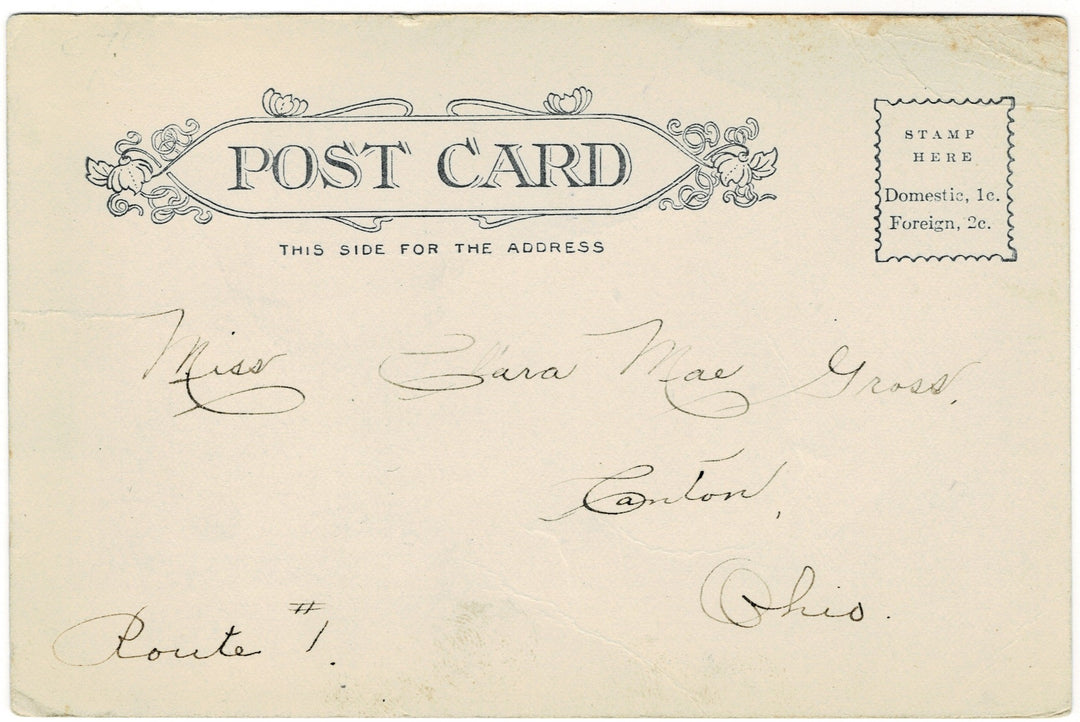 POST CARD
THIS SIDE FOR THE ADDRESS
STAMP
HERE
Domestic, 1c.
Foreign, 2c.
Miss Clara Mae Gross,
Canton,
Ohio.
Route #1.